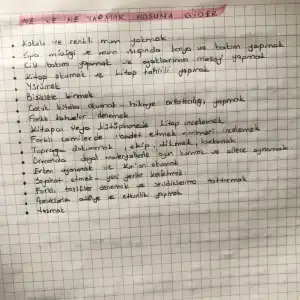 NE VE NE YAPMAK HOŞUNA GİDER
• Kokulu ve renkli mum yakmak
• Spa müziği ve mum ışığında banyo ve bakım yapmak
• Cilt bakımı yapmak ve ayaklarıma masaj yapmak
• Kitap okumak ve kitap tahlili yapmak
• Yürümek
• Bisiklete binmek
• Çocuk kitabı okumak, hikaye ortaklığı yapmak
• Farklı kahveler denemek
• Kitapçı veya kütüphanede kitap incelemek
• Farklı camilerde ibadet etmek, mimari incelemek
• Toprağa dokunmak, ekip, dikmek,
• Ormanda doğal materyallerle oyun kurmak ve ailece oynamak
• Erken uyanmak ve Kur'an okumak
• Seyahat etmek, yeni yerler keşfetmek
• Farklı tarifler denemek ve sevdiklerime tattırmak
• atölye ve etkinlik yapmak
• Yazmak